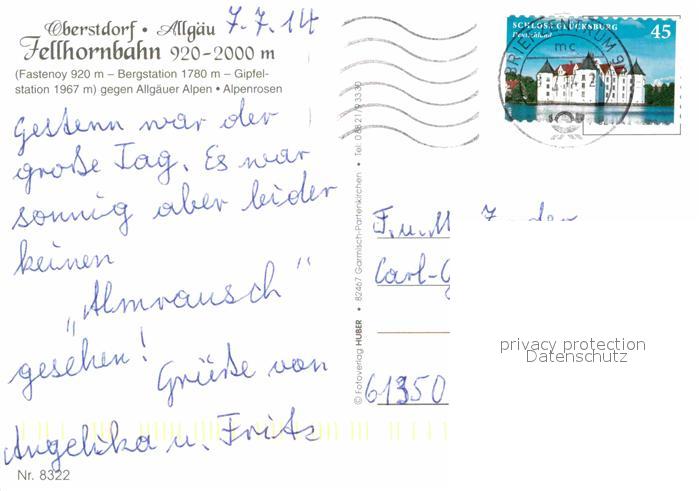 Oberstdorf • Allgäu
7.7.14
Fellhornbahn 920-2000 m
(Fastenoy 920 m – Bergstation 1780 m – Gipfel-
station 1967 m) gegen Allgäuer Alpen • Alpenrosen
Gestern war der
große Tag. Es war
sonnig aber leider
keinen
"Almrausch"
gesehen!
Grüße von
Angelika u. Fritz
Nr. 8322
© Fotoverlag HUBER • 82467 Garmisch-Partenkirchen • Tel. 0 88 21 / 9 33 30
SCHLOSS GLÜCKSBURG
Deutschland
45
BRIEFZENTRUM 9
mc
F. u. M
Carl-
61350
privacy protection
Datenschutz